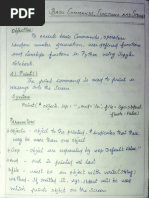 Basic Commands, Functions and
Objective
To execute basic Commands, operators
random number generation, user-defining functions
and lambda functions in Python using Jupyter
Notebook.
a) Print()
The print command is used to print a
message onto the screen.
Syntax
Print(object, sep='', end='\n', file=sys.stdout,
flush=False)
Parameters
object - object to the printed. * indicates that there
may be more than one object
sep - object are separated by sep. Default Value: ' '
end - end is printed at last
file - must be an object with write(string)
method. If omitted it, sys.stdout will be used
which prints object on the screen.